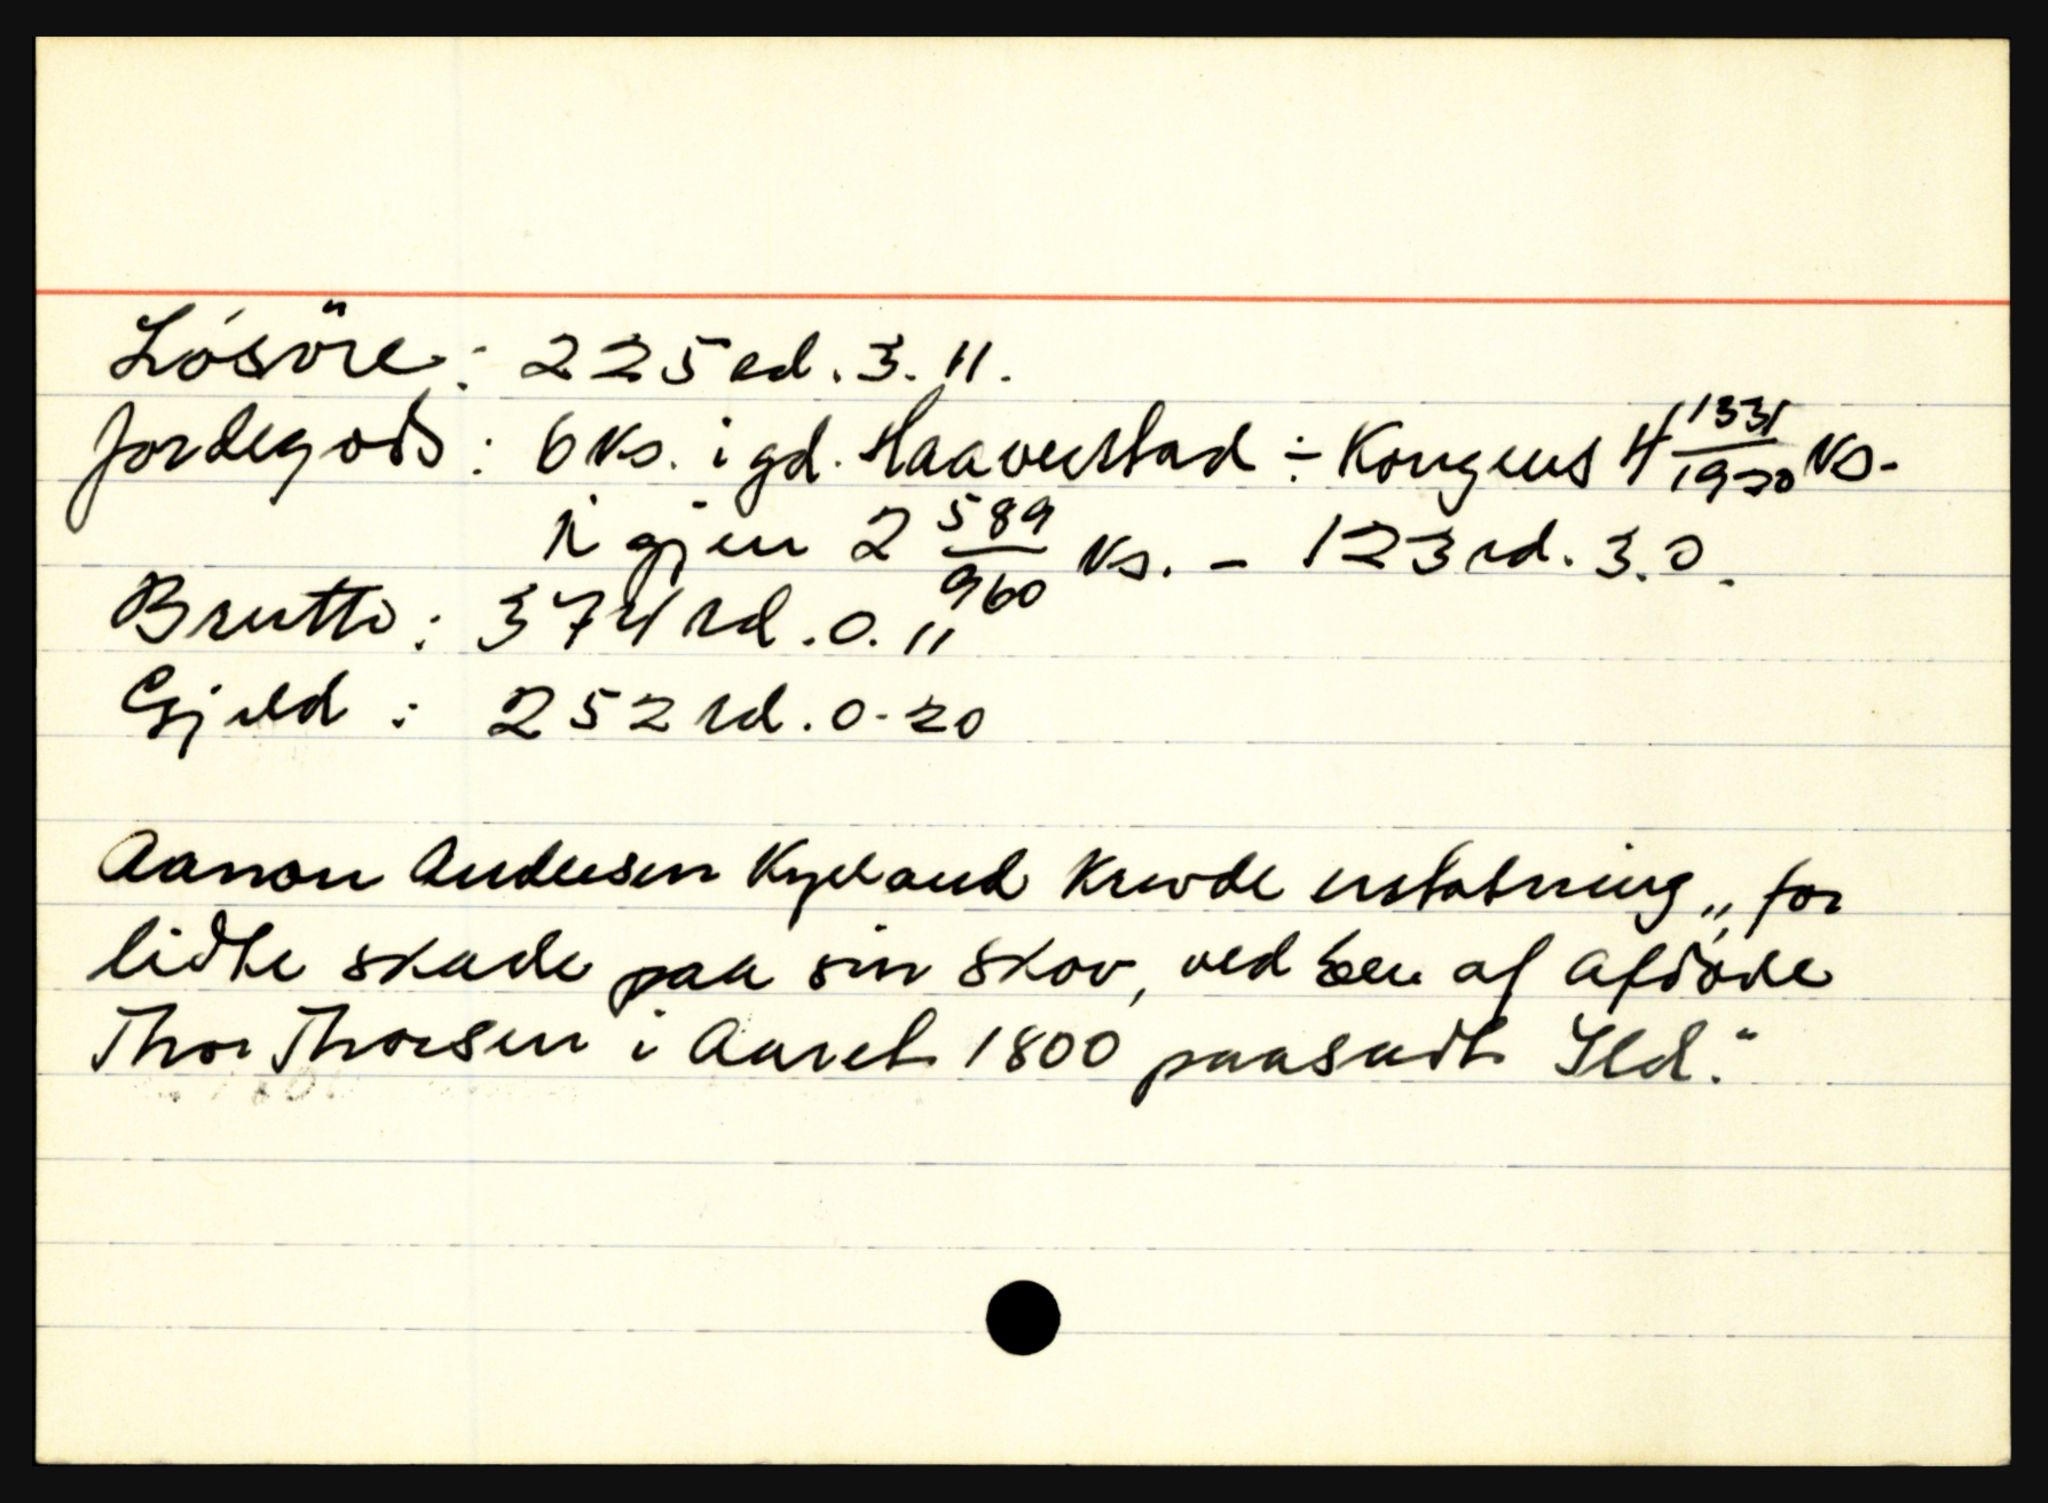 Lösöre: 225 rd. 3. 11.
Jordegods: 6 Ks. i gd. Haaverstad ÷ Kongens 4 1331/1920 Ks.
igjen 2 589/960 Ks. - 123 rd. 3. 0.
Brutto: 374 rd. 0. 11
Gjeld: 252 rd. 0-20
Aanon Andersen Kyeland Krevde erstatning „for
lidte skade paa sin Skov, ved af Afdöde
Thor Thorsen i Aaret 1800 paasadt Ild."